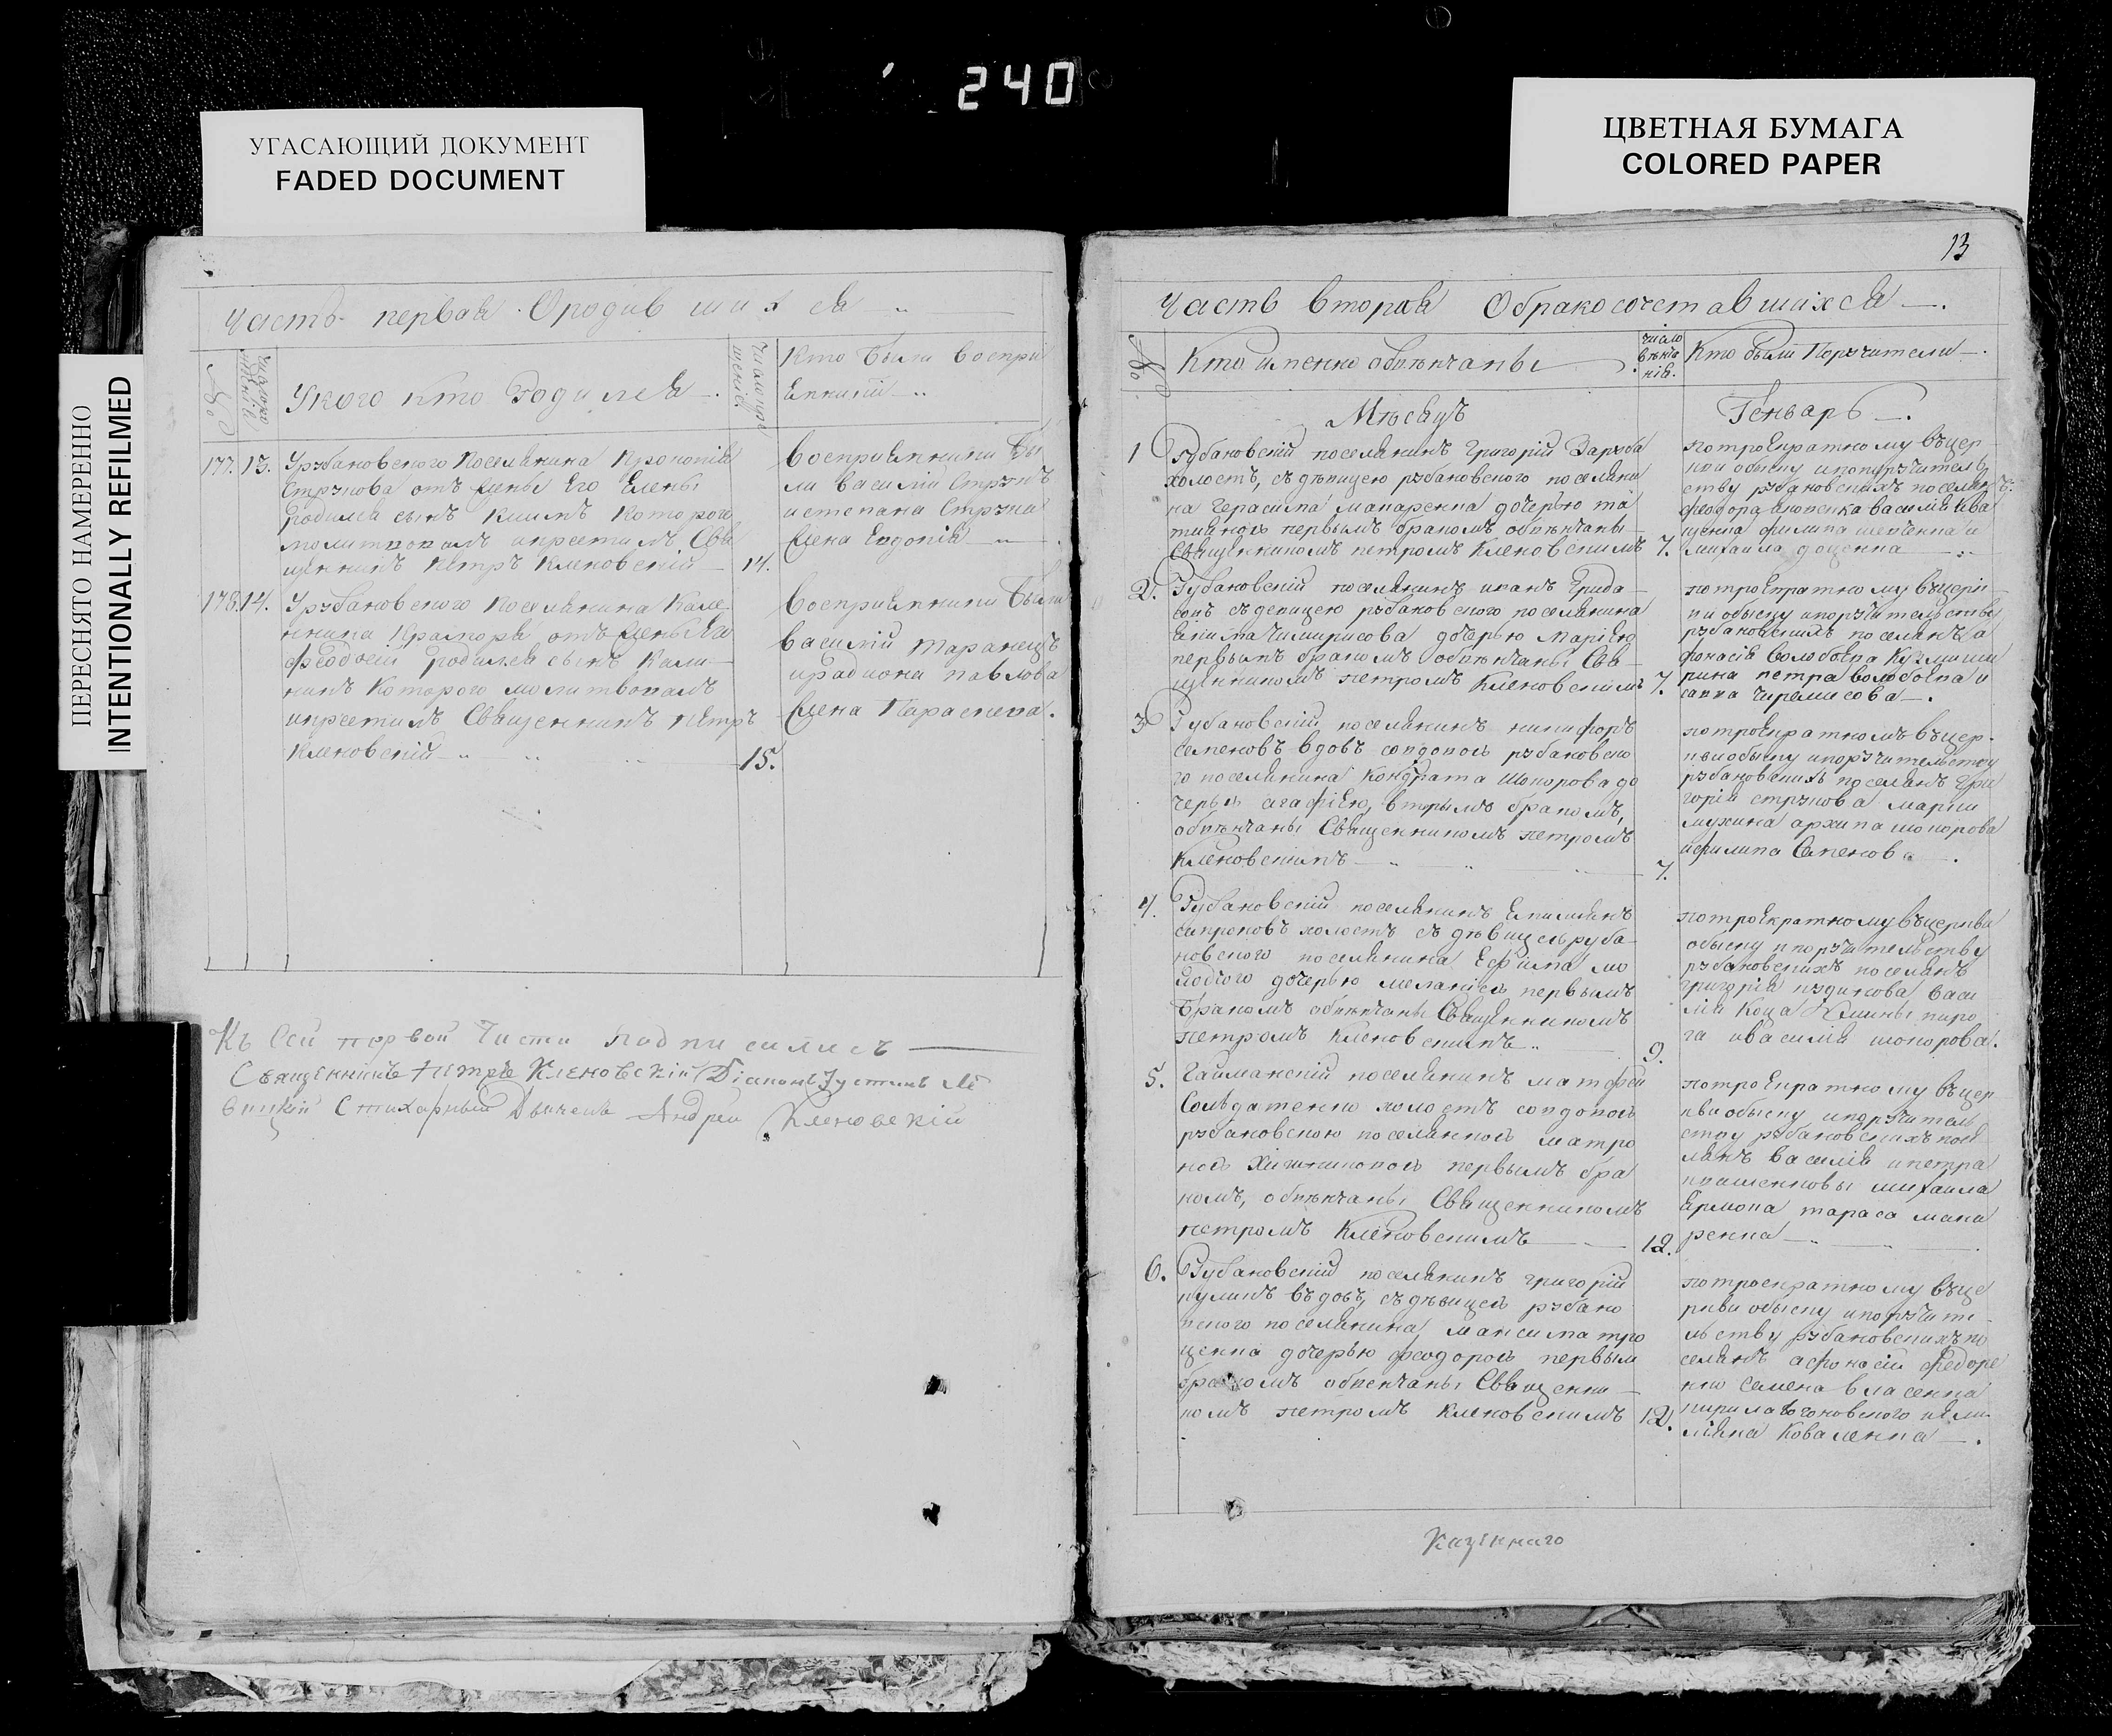 240
УГАСАЮЩИЙ ДОКУМЕНТ
FADED DOCUMENT
ЦВЕТНАЯ БУМАГА
COLORED PAPER
ПЕРЕСНЯТО НАМЕРЕННО
INTENTIONALLY REFILMED
Часть первая О родившихся
№
У кого кто родился
Кто были воспри
емники
177. 13. У рубановского поселянина Прокопія
Стрүкова отъ жены его Елены
родился сынъ Климъ котораго
молитвовалъ и крестилъ Свя
щенникъ Петръ Кленовскій 14.
Восприемники бы
ли василій Стрүкъ
и степана Стрүка
жена Евдокія
178. 14. У рубановского поселянина Кали
отъ жены Его
феодосіи родился сынъ Кали
никъ Которого молитвовалъ
и крестилъ Священникъ Петръ
Кленовскій 15.
Восприемники были
василій таранецъ
и радиона павлова
жена Параскева.
Къ Сей первой Части подписались
Священникъ Петръ Кленовскій Діаконъ Іустинъ Ле
вицкій Стихарный Дьячекъ Андрей Кленовскій
13
Часть вторая О бракосочетавшихся
№
Кто именно обвѣнчаны
число вѣнча нія.
Кто были Поручители
Мѣсяцъ
Генварь
1 Рубановскій поселянинъ григорій Заруба
холостъ, съ дѣвицею рубановского поселяни
на Герасима макаренка дочерью та
тияною первымъ бракомъ обвѣнчаны
Священникомъ петромъ Кленовскимъ 7.
потроекратному въ цер
кви обыску и по поручитель
ству рубановскихъ поселянъ
василія Ива
щенка филипа шевченка и
михаила доценка
2. Рубановскій поселянинъ иванъ
съ девицею рубановского поселянина
дочерью Маріею
первымъ бракомъ обвѣнчаны Свя
щенникомъ петромъ Кленовскимъ 7.
потроекратному въ церк
ви обыску и поручительству
рубановскихъ поселянъ а
фонасія Волобоева Кузмы
петра волобоева и
савка Чиремисова
3 Рубановскій поселянинъ никифоръ
семеновъ вдовъ со вдовою рубановско
го поселянина Кондрата Шопорова до
черью агафіею, вторымъ бракомъ,
обвѣнчаны Священникомъ петромъ
Кленовскимъ 7.
потроекратномъ въ цер
кви обыску и поручительству
рубановскихъ поселянъ гри
горія стрүкова марки
мухина архипа шопорова
и филипа Семенова
4. Рубановскій поселянинъ Емилианъ
сапроновъ холостъ съ дѣвицею руба
новского поселянина Ефима мо
дочерью меланіею первымъ
бракомъ обвѣнчаны Священникомъ
петромъ Кленовскимъ 9.
потроекратному въ церкви
обыску и поручительству
рубановскихъ поселянъ
григорія пудикова васи
лія Коца пиро
га и василія шопорова.
5. Гайманскій поселянинъ матфей
Солдатенко холостъ со вдовою
рубановскою поселянкою матро
ною первымъ бра
комъ, обвѣнчаны Священникомъ
петромъ Кленовскимъ 12.
потроекратному въ цер
кви обыску и поручитель
ству рубановскихъ посе
лянъ василія и петра
михаила
Ермона тараса мака
ренка
6. Рубановскій поселянинъ григорій
кулинъ вдовъ, съ дѣвицею рубано
вского поселянина максима тро
ценка дочерью феодорою первым
бракомъ обвенчаны Священни
комъ петромъ Кленовскимъ 12.
потроекратному въ це
ркви обыску и поручите
льству рубановскихъ по
селянъ афонасія федоре
нко семена власенка
кирила и еми
ліяна Коваленка
Казеннаго